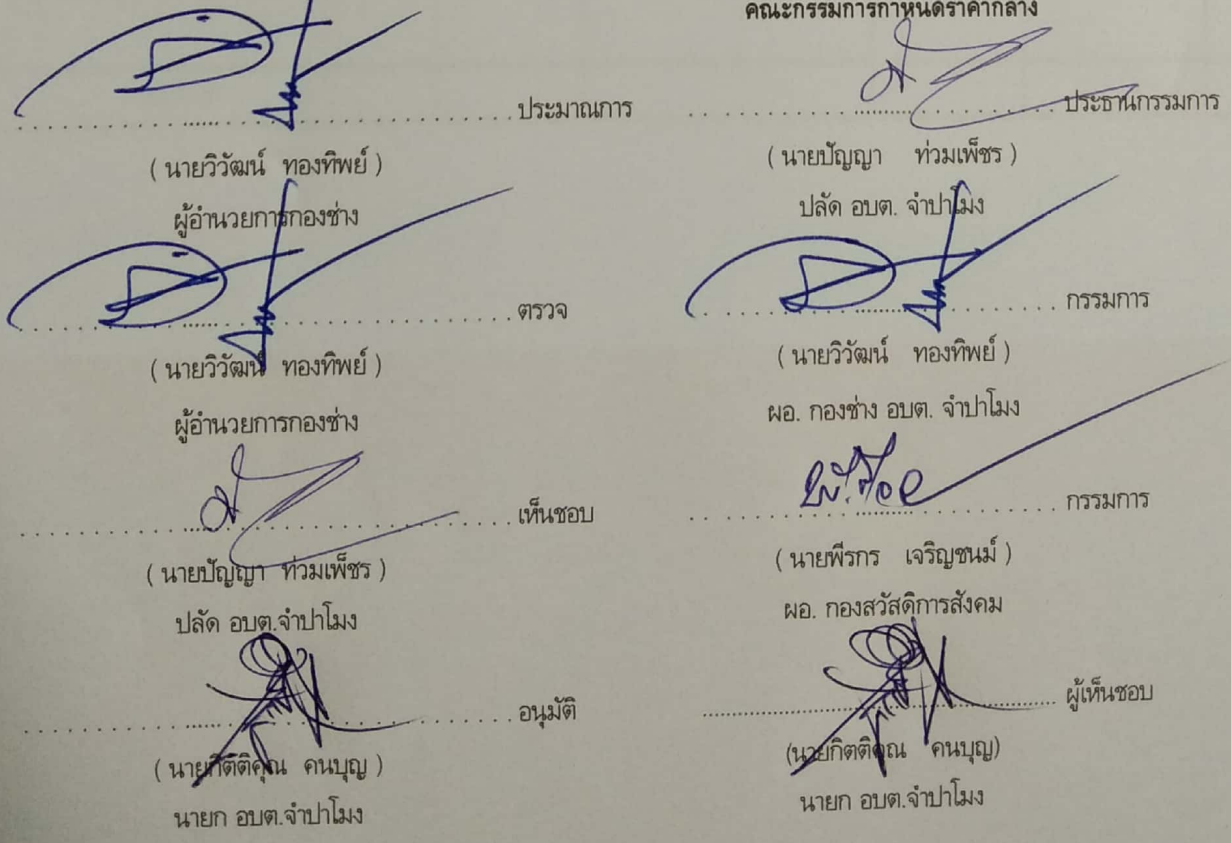 ประมาณการ
( นายวิวัฒน์ ทองทิพย์ )
ผู้อำนวยการกองช่าง
ตรวจ
( นายวิวัฒน์ ทองทิพย์ )
ผู้อำนวยการกองช่าง
เห็นชอบ
( นายปัญญา ท่วมเพ็ชร )
ปลัด อบต.จำปาโมง
อนุมัติ
( นายกิตติคุณ คนบุญ )
นายก อบต.จำปาโมง
คณะกรรมการกำหนดราคากลาง
ประธานกรรมการ
( นายปัญญา ท่วมเพ็ชร )
ปลัด อบต. จำปาโมง
กรรมการ
( นายวิวัฒน์ ทองทิพย์ )
ผอ. กองช่าง อบต. จำปาโมง
กรรมการ
( นายพีรกร เจริญชนม์ )
ผอ. กองสวัสดิการสังคม
ผู้เห็นชอบ
(นายกิตติคุณ คนบุญ)
นายก อบต.จำปาโมง